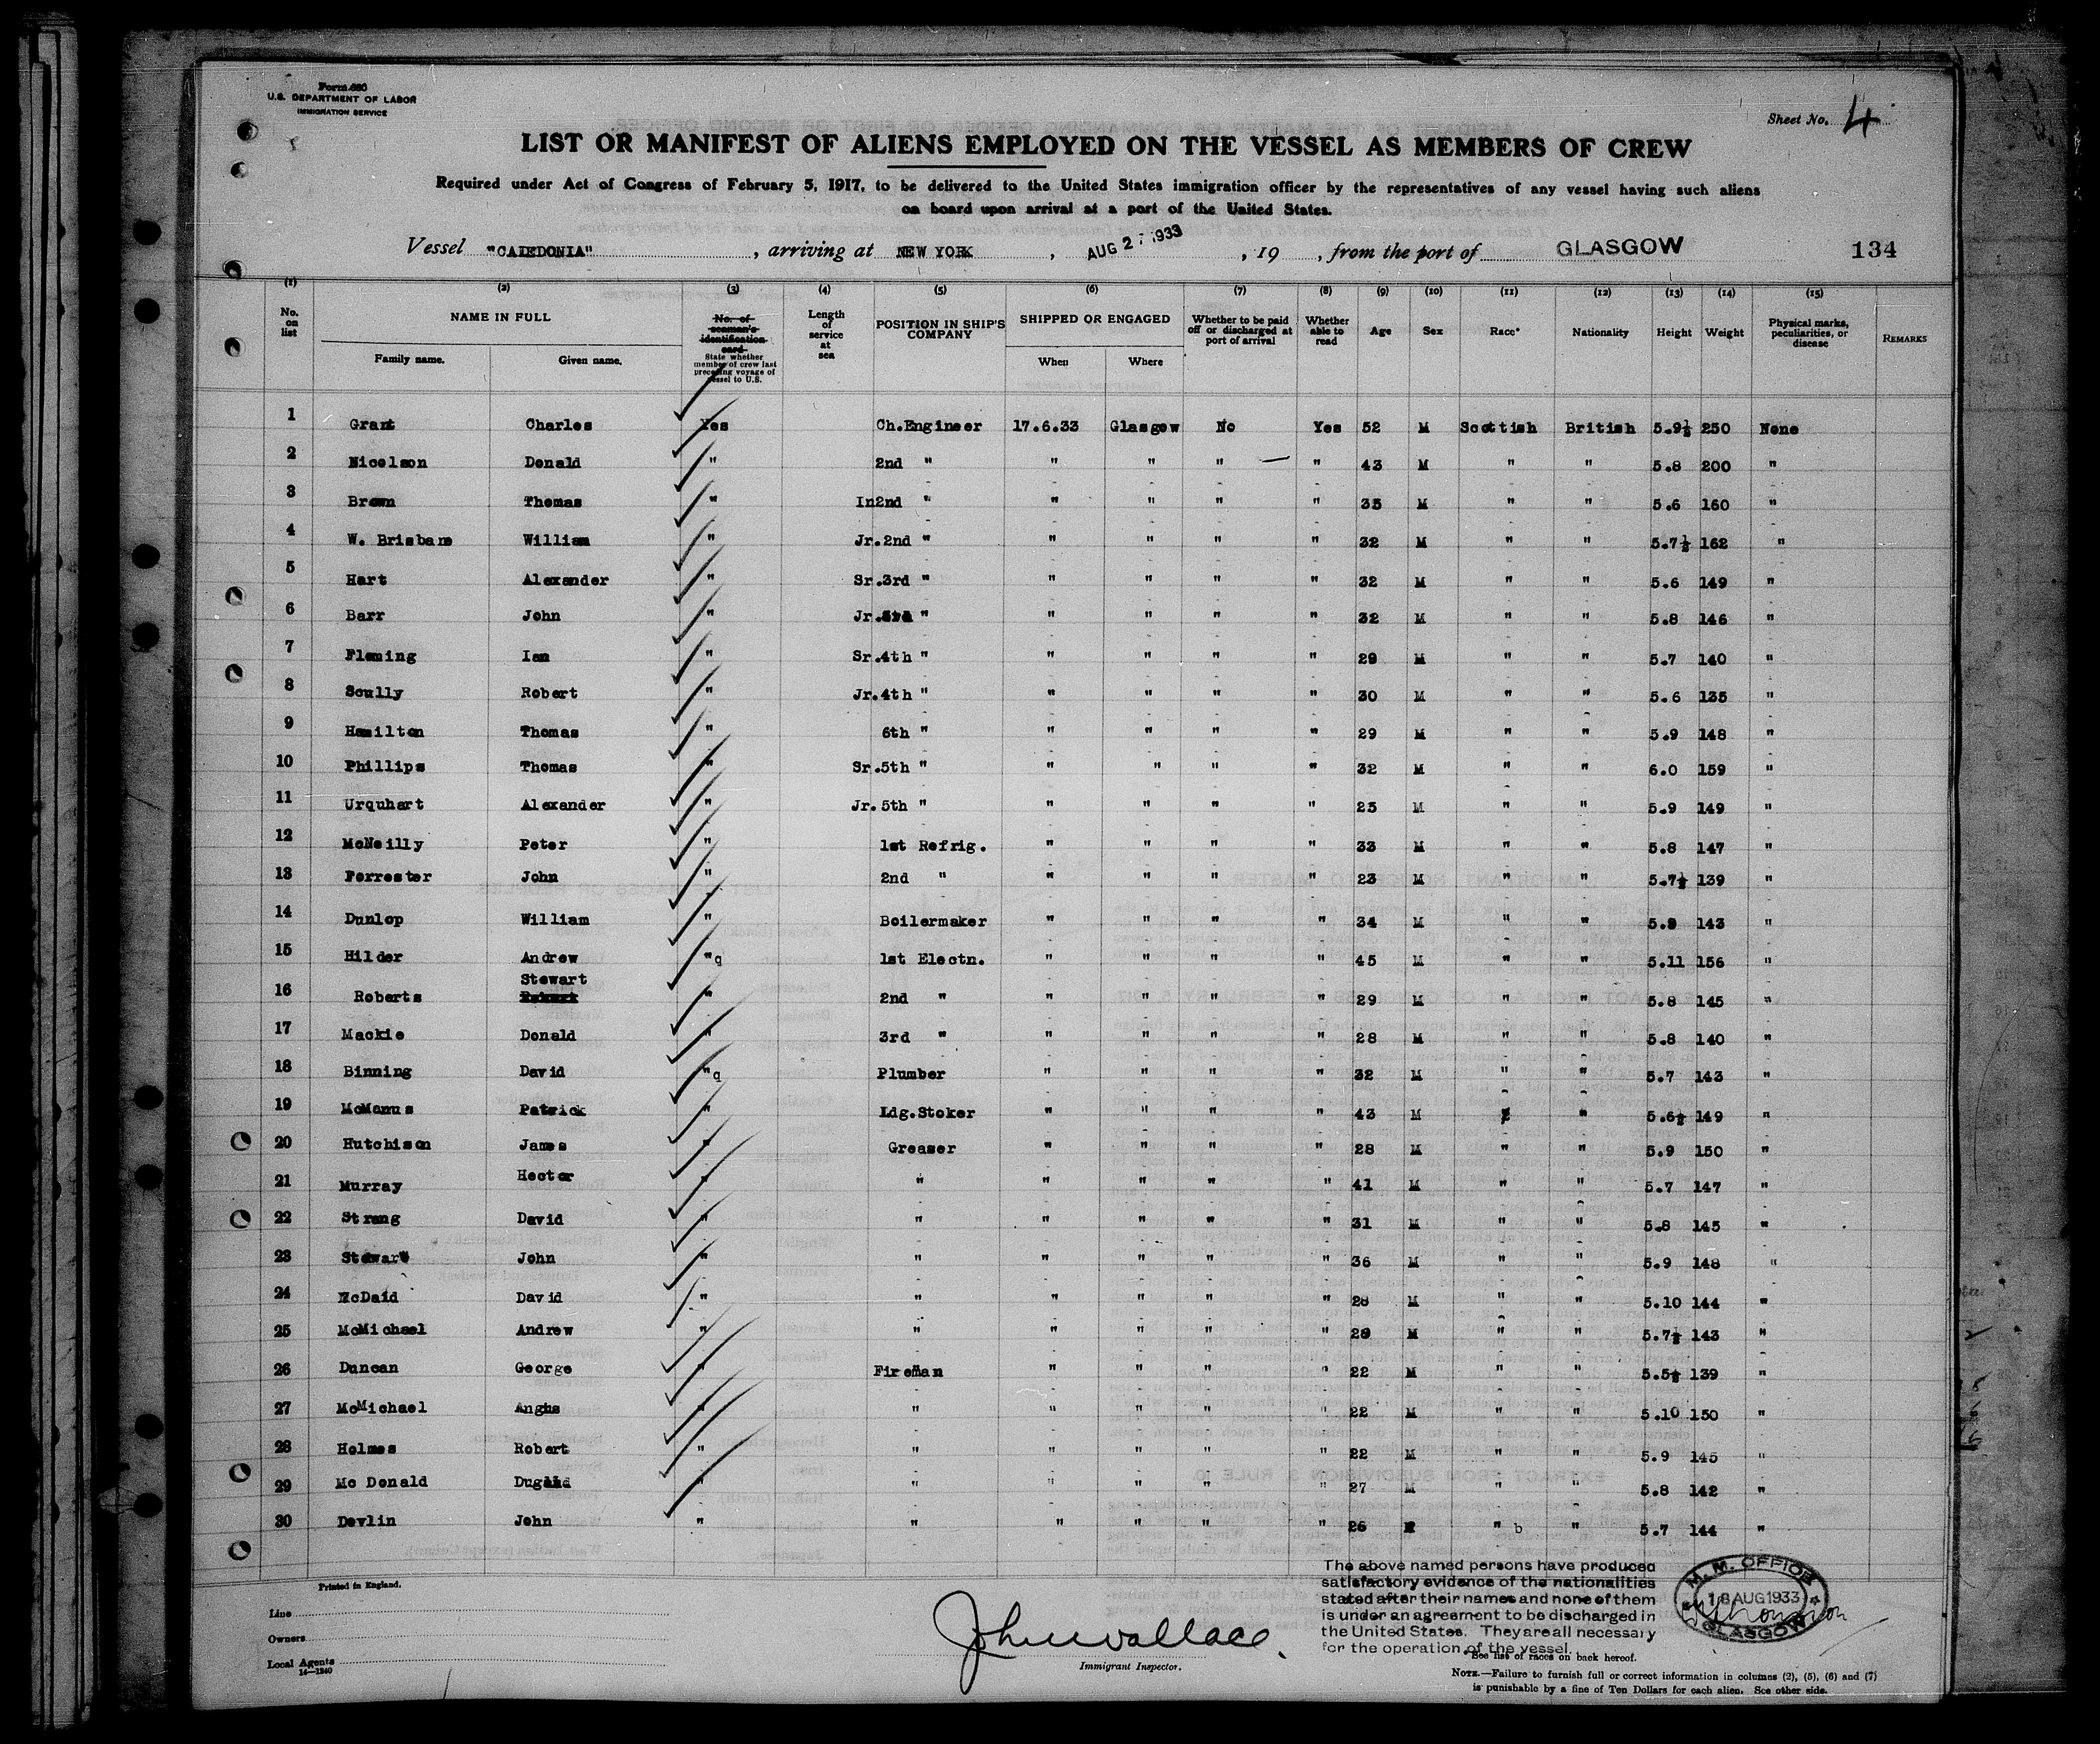 Form 680
U.S. DEPARTMENT OF LABOR
IMMIGRATION SERVICE
Sheet No. 4
LIST OR MANIFEST OF ALIENS EMPLOYED ON THE VESSEL AS MEMBERS OF CREW
Required under Act of Congress of February 5, 1917, to be delivered to the United States immigration officer by the representatives of any vessel having such aliens
on board upon arrival at a port of the United States.
Vessel "CALEDONIA", arriving at NEW YORK, AUG 27 1933, 19 , from the port of GLASGOW 134
(1) (2) (3) (4) (5) (6) (7) (8) (9) (10) (11) (12) (13) (14) (15)
No. on list NAME IN FULL Family name. Given name. No. of seaman's identification card State whether member of crew last preceding voyage of vessel to U.S. Length of service at sea POSITION IN SHIP'S COMPANY SHIPPED OR ENGAGED When Where Whether to be paid off or discharged at port of arrival Whether able to read Age Sex Race* Nationality Height Weight Physical marks, peculiarities, or disease REMARKS
1 Grant Charles Yes Ch.Engineer 17.6.33 Glasgow No Yes 52 M Scottish British 5.9½ 250 None
2 Nicolson Donald " 2nd " " " " — " 43 M " " 5.8 200 "
3 Brown Thomas " In2nd " " " " " 35 M " " 5.6 160 "
4 W. Brisbane William " Jr.2nd " " " " " 32 M " " 5.7½ 162 "
5 Hart Alexander " Sr.3rd " " " " " 32 M " " 5.6 149 "
6 Barr John " Jr.3rd " " " " " 32 M " " 5.8 146 "
7 Fleming Ian " Sr.4th " " " " " 29 M " " 5.7 140 "
8 Scully Robert " Jr.4th " " " " " 30 M " " 5.6 135 "
9 Hamilton Thomas " 6th " " " " " 29 M " " 5.9 148 "
10 Phillips Thomas " Sr.5th " " " " " 32 M " " 6.0 159 "
11 Urquhart Alexander " Jr.5th " " " " " 25 M " " 5.9 149 "
12 McNeilly Peter " 1st Refrig. " " " " 33 M " " 5.8 147 "
13 Forrester John " 2nd " " " " " 23 M " " 5.7½ 139 "
14 Dunlop William " Boilermaker " " " " 34 M " " 5.9 143 "
15 Hilder Andrew "q 1st Electn. " " " " 45 M " " 5.11 156 "
16 Roberts Stewart " 2nd " " " " " 29 M " " 5.8 145 "
17 Mackie Donald " 3rd " " " " " 28 M " " 5.8 140 "
18 Binning David "q Plumber " " " " 32 M " " 5.7 143 "
19 McManus Patrick " Ldg.Stoker " " " " 43 M " 5.6½ 149 "
20 Hutchison James " Greaser " " " " 28 M " " 5.9 150 "
21 Murray Hector " " " " " " 41 M " " 5.7 147 "
22 Strang David " " " " " " 31 M " " 5.8 145 "
23 Stewart John " " " " " " 36 M " " 5.9 148 "
24 McDaid David " " " " " " 28 M " " 5.10 144 "
25 McMichael Andrew " " " " " " 29 M " " 5.7½ 143 "
26 Duncan George " Fireman " " " " 22 M " " 5.5½ 139 "
27 McMichael Angus " " " " " " 22 M " " 5.10 150 "
28 Holmes Robert " " " " " " 22 M " " 5.9 145 "
29 Mc Donald Dugald " " " " " " 27 M " " 5.8 142 "
30 Devlin John " " " " " " 26 " b " 5.7 144 "
Printed in England.
Line
Owners
Local Agents
14—1240
John Wallace.
Immigrant Inspector.
The above named persons have produced
satisfactory evidence of the nationalities
stated after their names and none of them
is under an agreement to be discharged in
the United States. They are all necessary
for the operation of the vessel.
M. M. OFFICE
18 AUG 1933
GLASGOW
*See list of races on back hereof.
NOTE.—Failure to furnish full or correct information in columns (2), (5), (6) and (7)
is punishable by a fine of Ten Dollars for each alien. See other side.